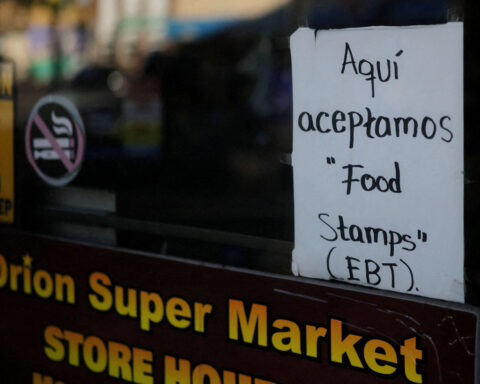 Aquí
aceptamos
"Food
Stamps"
(EBT).
Orion Super Market
STORE HOU